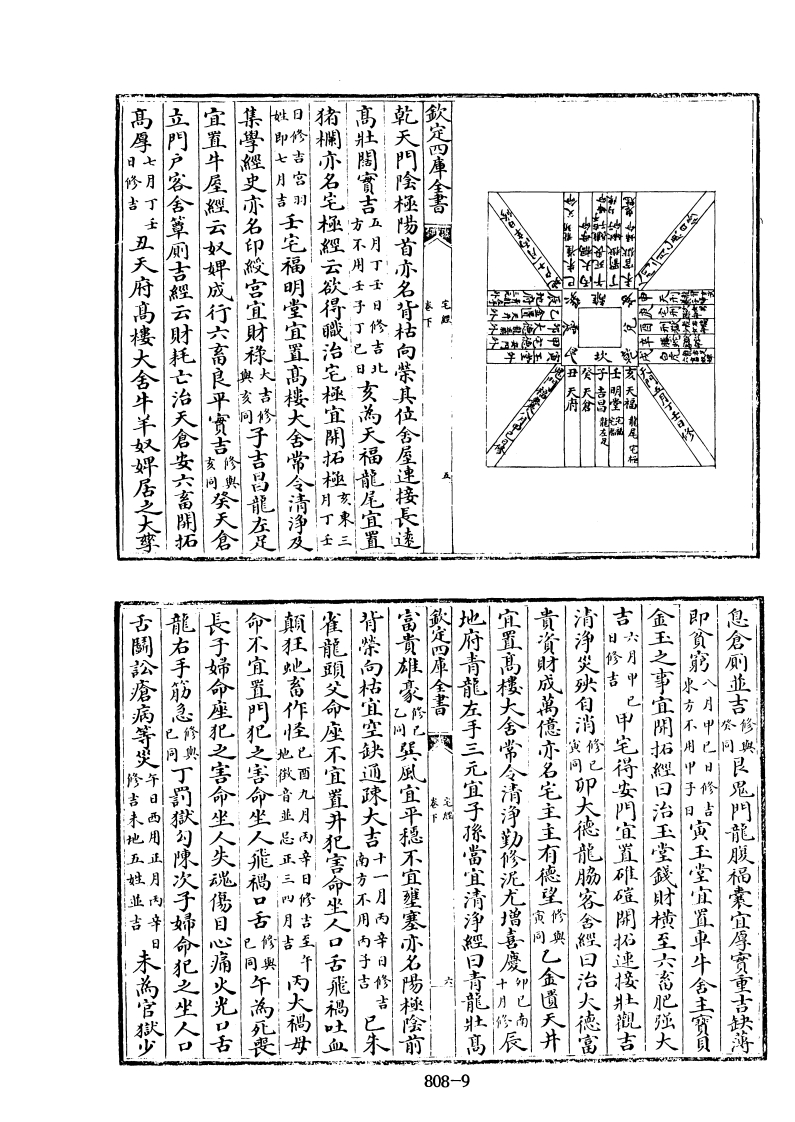 亥天福 龍尾 宅極
壬明堂 宅福
子吉昌 龍左足
癸天倉
丑天府
離
坎
欽定四庫全書
宅經
卷下
五
乾天門陰極陽首亦名背枯向榮其位舍屋連接長遠
高壯闊實吉五月丁壬日修吉北方不用壬子丁巳日亥為天福龍尾宜置
猪欄亦名宅極經云欲得職治宅極宜開拓極亥東三月丁壬
日修吉宮羽姓即七月吉壬宅福明堂宜置高樓大舍常令清淨及
集學經史亦名印綬宮宜財祿大吉修與亥同子吉昌龍左足
宜置牛屋經云奴婢成行六畜良平實吉修與亥同癸天倉
立門戶客舍簟廁吉經云財耗亡治天倉安六畜開拓
高厚七月丁壬日修吉丑天府高樓大舍牛羊奴婢居之大孳
息倉廁並吉修與癸同艮鬼門龍腹福囊宜厚實重吉缺薄
即貧窮八月甲巳日修吉東方不用甲子日寅玉堂宜置車牛舍主寶貝
金玉之事宜開拓經曰治玉堂錢財橫至六畜肥強大
吉六月甲巳日修吉甲宅得安門宜置碓磑開拓連接壯觀吉
清淨災殃自消修巳寅同卯大德龍脇客舍經曰治大德富
貴資財成萬億亦名宅主主有德望修與寅同乙金匱天井
宜置高樓大舍常令清淨勤修泥尤增喜慶卯巳南十月修辰
地府青龍左手三元宜子孫當宜清淨經曰青龍壯高
欽定四庫全書
宅經
卷下
六
富貴雄豪修巳乙同巽風宜平穩不宜壅塞亦名陽極陰前
背榮向枯宜空缺通疎大吉十一月丙辛日修吉南方不用丙子吉巳朱
雀龍頭父命座不宜置井犯害命坐人口舌飛禍吐血
顛狂虵畜作怪巳酉九月丙辛日修吉至午地徵音並忌正三四月吉丙大禍母
命不宜置門犯之害命坐人飛禍口舌修與巳同午為死喪
長子婦命座犯之害命坐人失魂傷目心痛火光口舌
龍右手筋急修與巳同丁罰獄勾陳次子婦命犯之坐人口
舌鬬訟瘡病等災午日西用正月丙辛日修吉未地五姓並吉未為官獄少
808-9